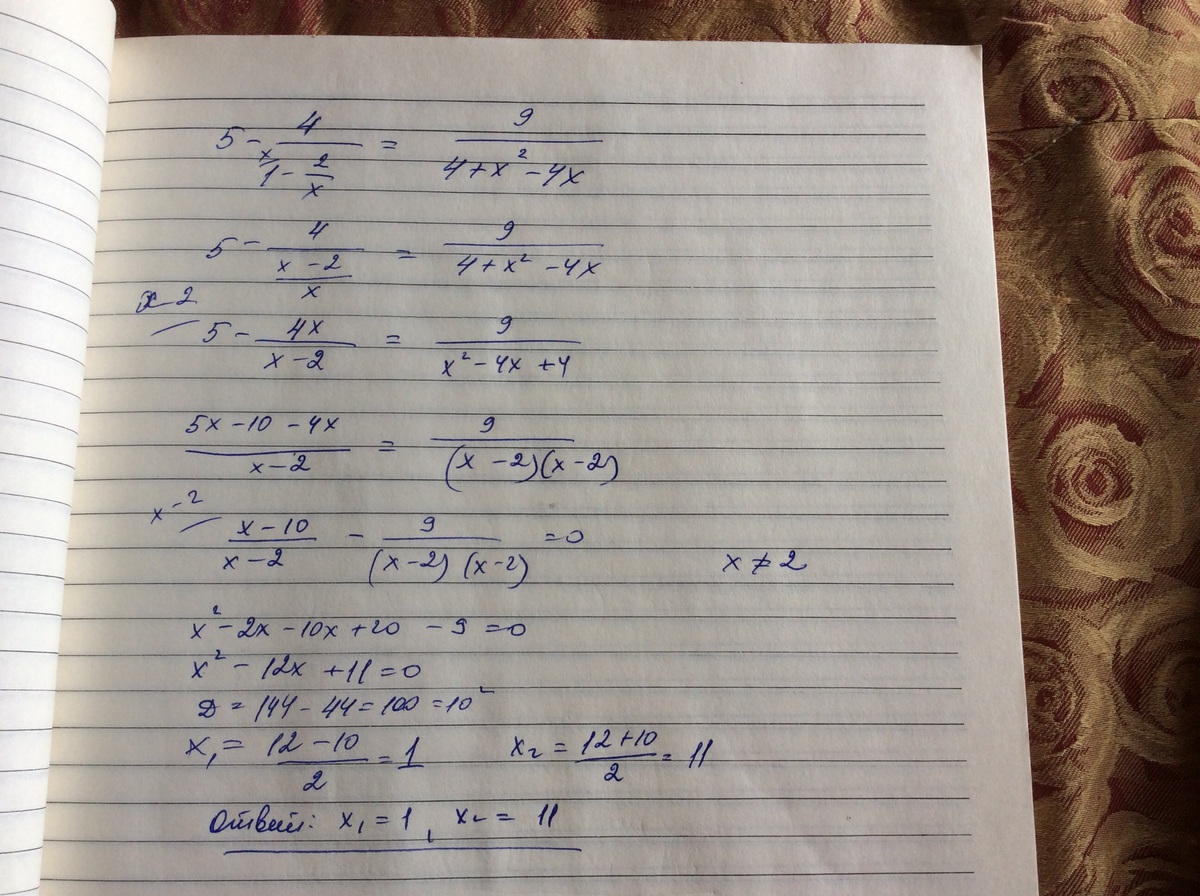 5 - 4/(1 - 2/x) = 9/(4+x² - 4x)
x
5 - 4/((x - 2)/x) = 9/(4+x² - 4x)
x-2
5 - 4x/(x-2) = 9/(x² - 4x + 4)
(5x - 10 - 4x)/(x-2) = 9/((x - 2)(x-2))
x-2
(x - 10)/(x-2) - 9/((x-2)(x-2)) = 0 x ≠ 2
x² - 2x - 10x + 20 - 9 = 0
x² - 12x + 11 = 0
D = 144 - 44 = 100 = 10²
x₁ = (12 - 10)/2 = 1 x₂ = (12+10)/2 = 11
Ответ: x₁ = 1, x₂ = 11